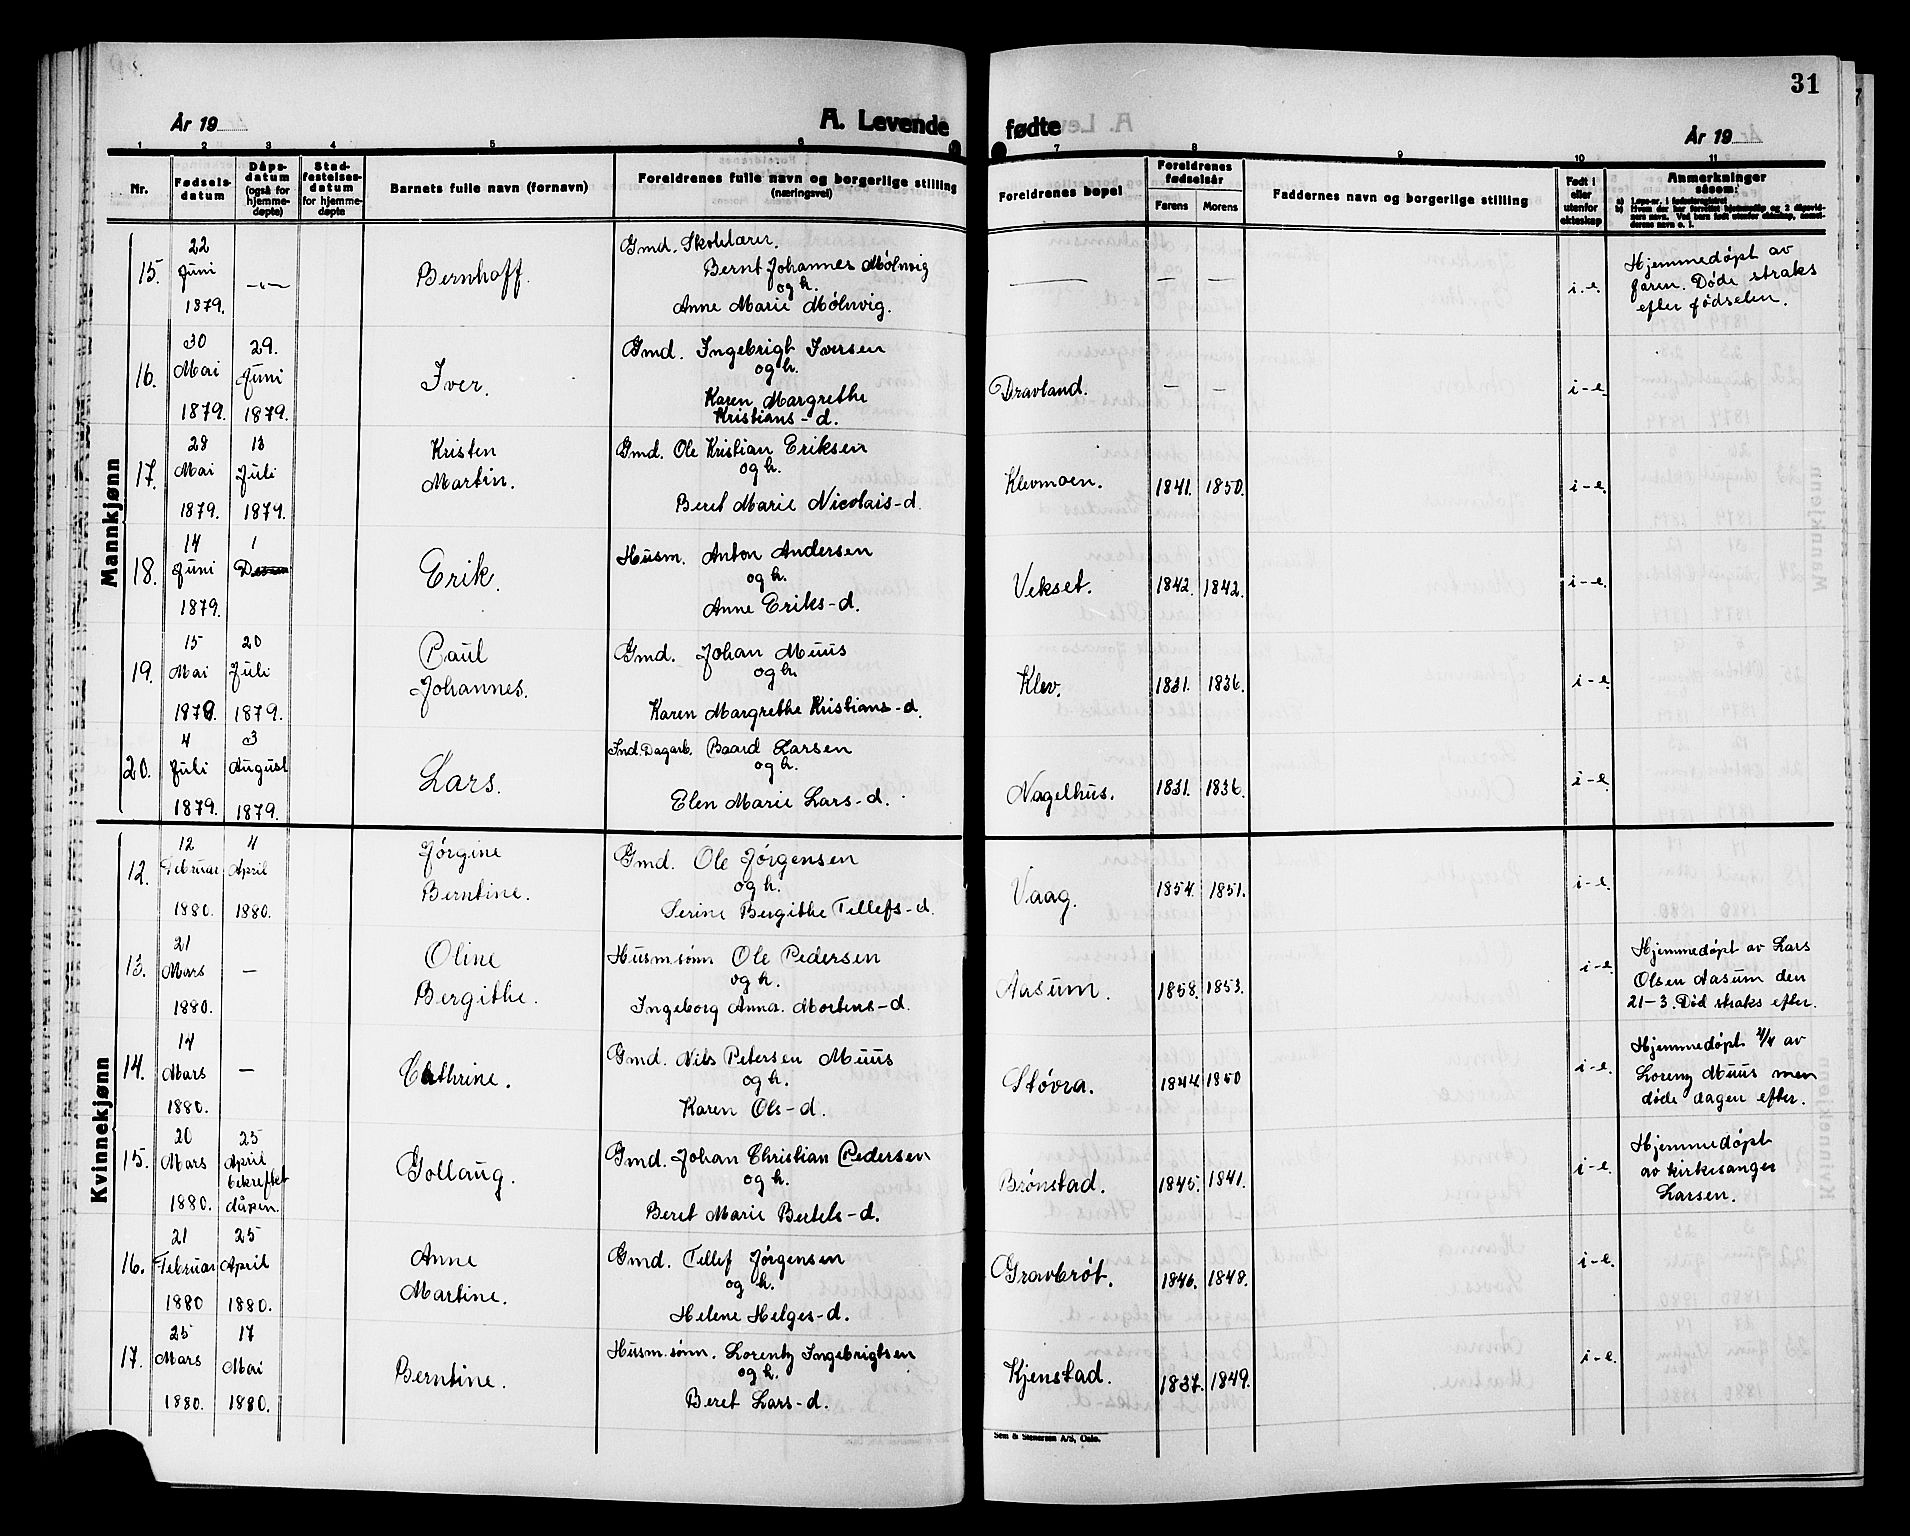 31
År 19
A. Levende
fødte
År 19
1 2 3 4 5 6 7 8 9 10 11
Nr.
Fødsels-
datum
Dåps-
datum
(også for
hjemme-
døpte)
Stad-
festelses-
datum
for hjemme-
døpte
Barnets fulle navn (fornavn)
Foreldrenes fulle navn og borgerlige stilling
(næringsvei)
Foreldrenes bopel
Foreldrenes
fødselsår
Farens
Morens
Faddernes navn og borgerlige stilling
Født i
eller
utenfor
ekteskap
Anmerkninger
såsom:
Mannkjønn
15.
22
Juni
1879.
-"-
Bernhoff.
Gmd. Skolelærer.
Bernt Johannes Mølnvig
og h.
Anne Marie Mølnvig.
—
—
—
i-e.
Hjemmedøpt av
faren. Døde straks
efter fødselen.
16.
30
Mai
1879.
29.
Juni
1879.
Iver.
Gmd. Ingebrigt Iversen
og h.
Karen Margrethe
Kristians-d.
Dravland.
—
—
i-e.
17.
28
Mai
1879.
13
Juli
1879.
Kristen
Martin.
Gmd. Ole Kristian Eriksen
og h.
Beret Marie Nicolais-d.
Klevmoen.
1841.
1850.
i-e.
18.
14
Juni
1879.
1
Erik.
Husm. Anton Andersen
og h.
Anne Eriks-d.
Vekset.
1842.
1842.
i-e.
19.
15
Mai
1879.
20
Juli
1879.
Paul
Johannes.
Gmd. Johan Muus
og h.
Karen Margrethe Kristians-d.
Klev.
1831.
1836.
i-e.
20.
4
Juli
1879.
3
August
1879.
Lars.
Ind. Dagarb. Baard Larsen
og h.
Elen Marie Lars-d.
Nagelhus.
1831.
1836.
i-e.
Kvinnekjønn
12.
12
Februar
1880.
4
April
1880.
Jørgine
Berntine.
Gmd. Ole Jørgensen
og h.
Serine Bergithe Tellefs-d.
Vaag.
1854.
1851.
i-e.
13.
21
Mars
1880.
—
Oline
Bergithe.
Husm.sønn Ole Pedersen
og h.
Ingeborg Anna Mortens-d.
Aasum.
1858.
1853.
i-e.
Hjemmedøpt av Lars
Olsen Aasum den
21-3. Død straks efter.
14.
14
Mars
1880.
—
Cathrine.
Gmd. Nils Petersen Muus
og h.
Karen Ols-d.
Støvra.
1844.
1850
i-e.
Hjemmedøpt 4/4 av
Lorentz Muus men
døde dagen efter.
15.
20
Mars
1880.
25
April
bekreftet
dåpen.
Gollaug.
Gmd. Johan Christian Pedersen
og h.
Beret Marie Bertels-d.
Brønstad.
1845.
1841.
i-e.
Hjemmedøpt
av kirkesanger
Larsen.
16.
21
Februar
1880
25
April
1880.
Anne
Martine.
Gmd. Tellef Jørgensen
og h.
Helene Helges-d.
Gravbrøt.
1846.
1848.
i-e.
17.
25
Mars
1880.
17
Mai
1880.
Berntine.
Husm.sønn. Lorentz Ingebrigtsen
og h.
Beret Lars-d.
Kjenstad.
1837.
1849.
i-e.
Sem & Stenersen A/S, Oslo.